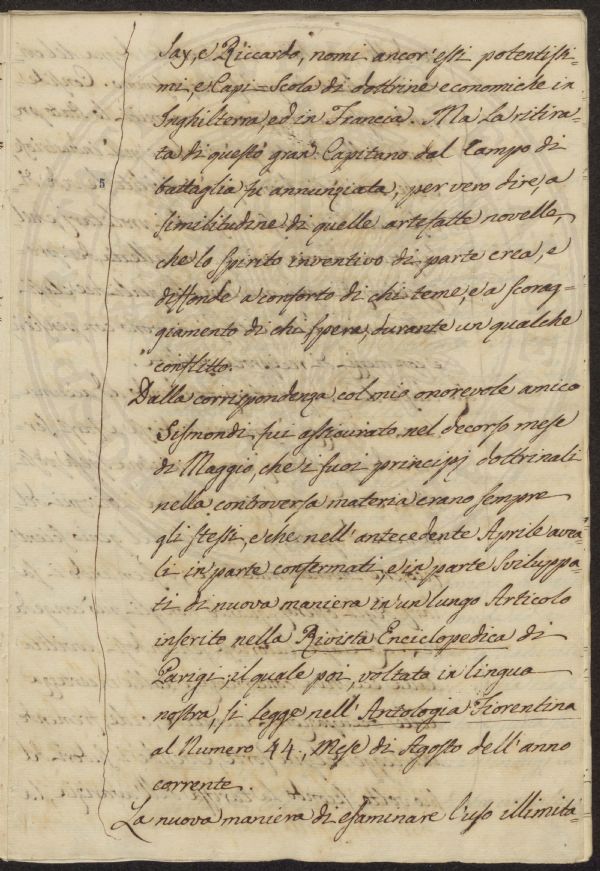 Say, e Riccardo, nomi ancor'essi potentissi-
mi, e Capi=Scola di dottrine economiche in
Inghilterra, ed in Francia. Ma la ritira-
ta di questo gran Capitano dal Campo di
5
battaglia fu annunziata, per vero dire, a
similitudine di quelle artefatte novelle,
che lo spirito inventivo di parte crea, e
diffonde a conforto di chi teme, e a scorag-
giamento di chi spera, durante un qualche
conflitto.
Dalla corrispondenza col mio onorevole amico
Sismondi fui assicurato nel decorso mese
di Maggio, che i suoi principj dottrinali
nella controversa materia erano sempre
gli stessi, e che nell'antecedente Aprile avea-
li in parte confermati, e in parte sviluppa-
ti di nuova maniera in un lungo Articolo
inserito nella Rivista Enciclopedica di
Parigi; il quale poi, voltato in lingua
nostra, si legge nell'Antologia Fiorentina
al Numero 44., Mese di Agosto dell'anno
corrente.
La nuova maniera di esaminare l'uso illimita-